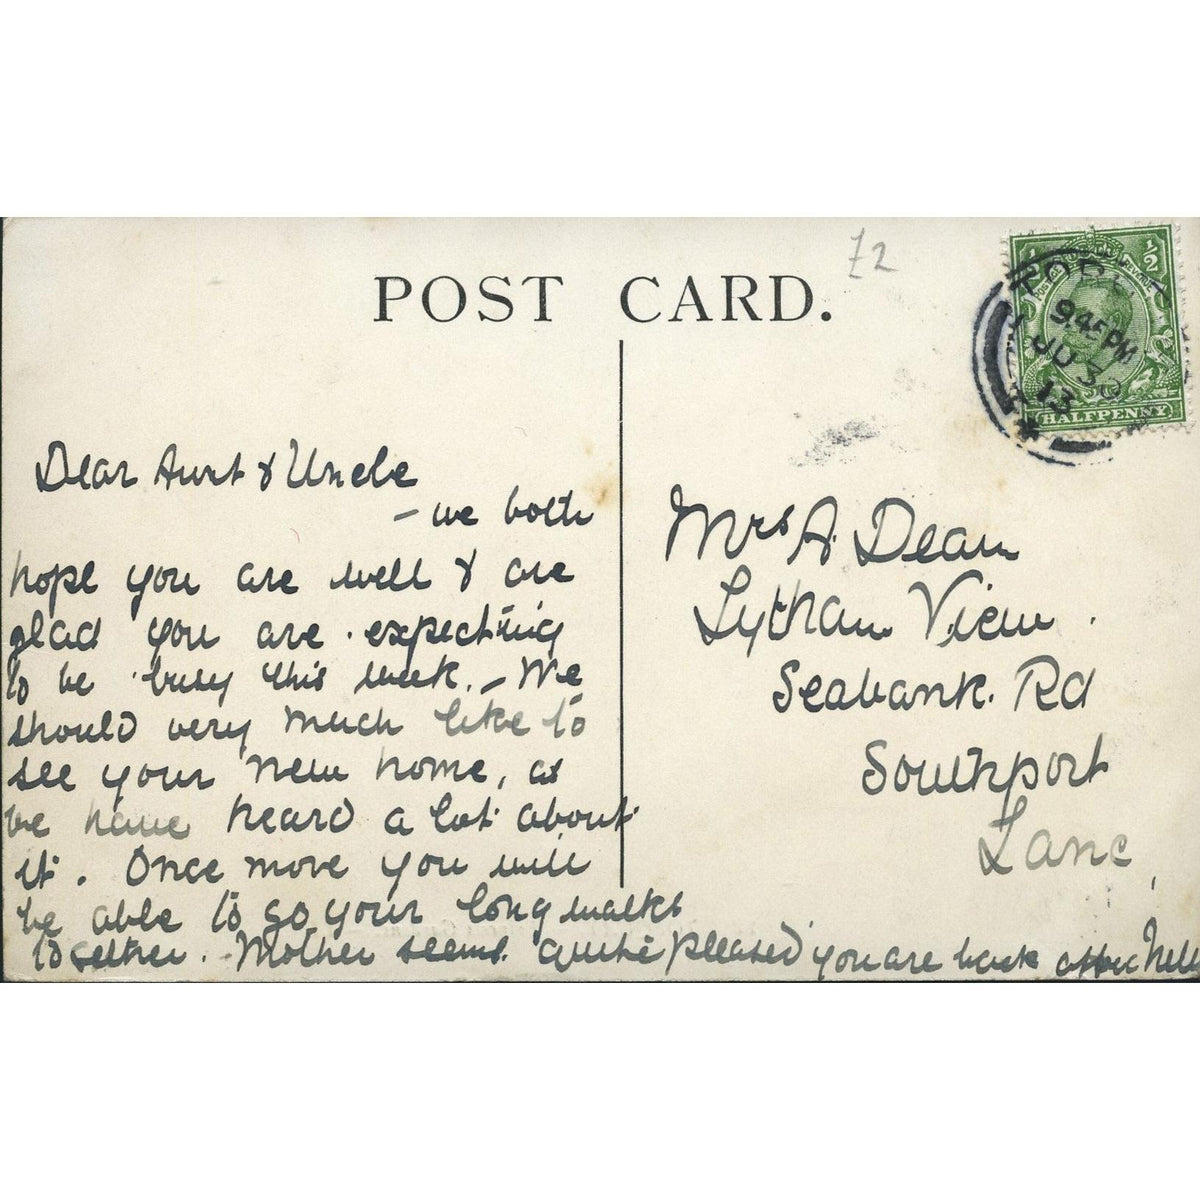 £2
POST CARD.
½ ½
POSTAGE REVENUE
HALFPENNY
9.45 PM
JU 30
13
Dear Aunt & Uncle
– we both
hope you are well & are
glad you are expecting
to be busy this week. – We
should very much like to
see your new home, as
we have heard a lot about
it. Once more you will
be able to go your long walks
together. Mother seems quite pleased you are back Nell
Mrs A. Dean
Lytham View.
Seabank. Rd
Southport
Lanc